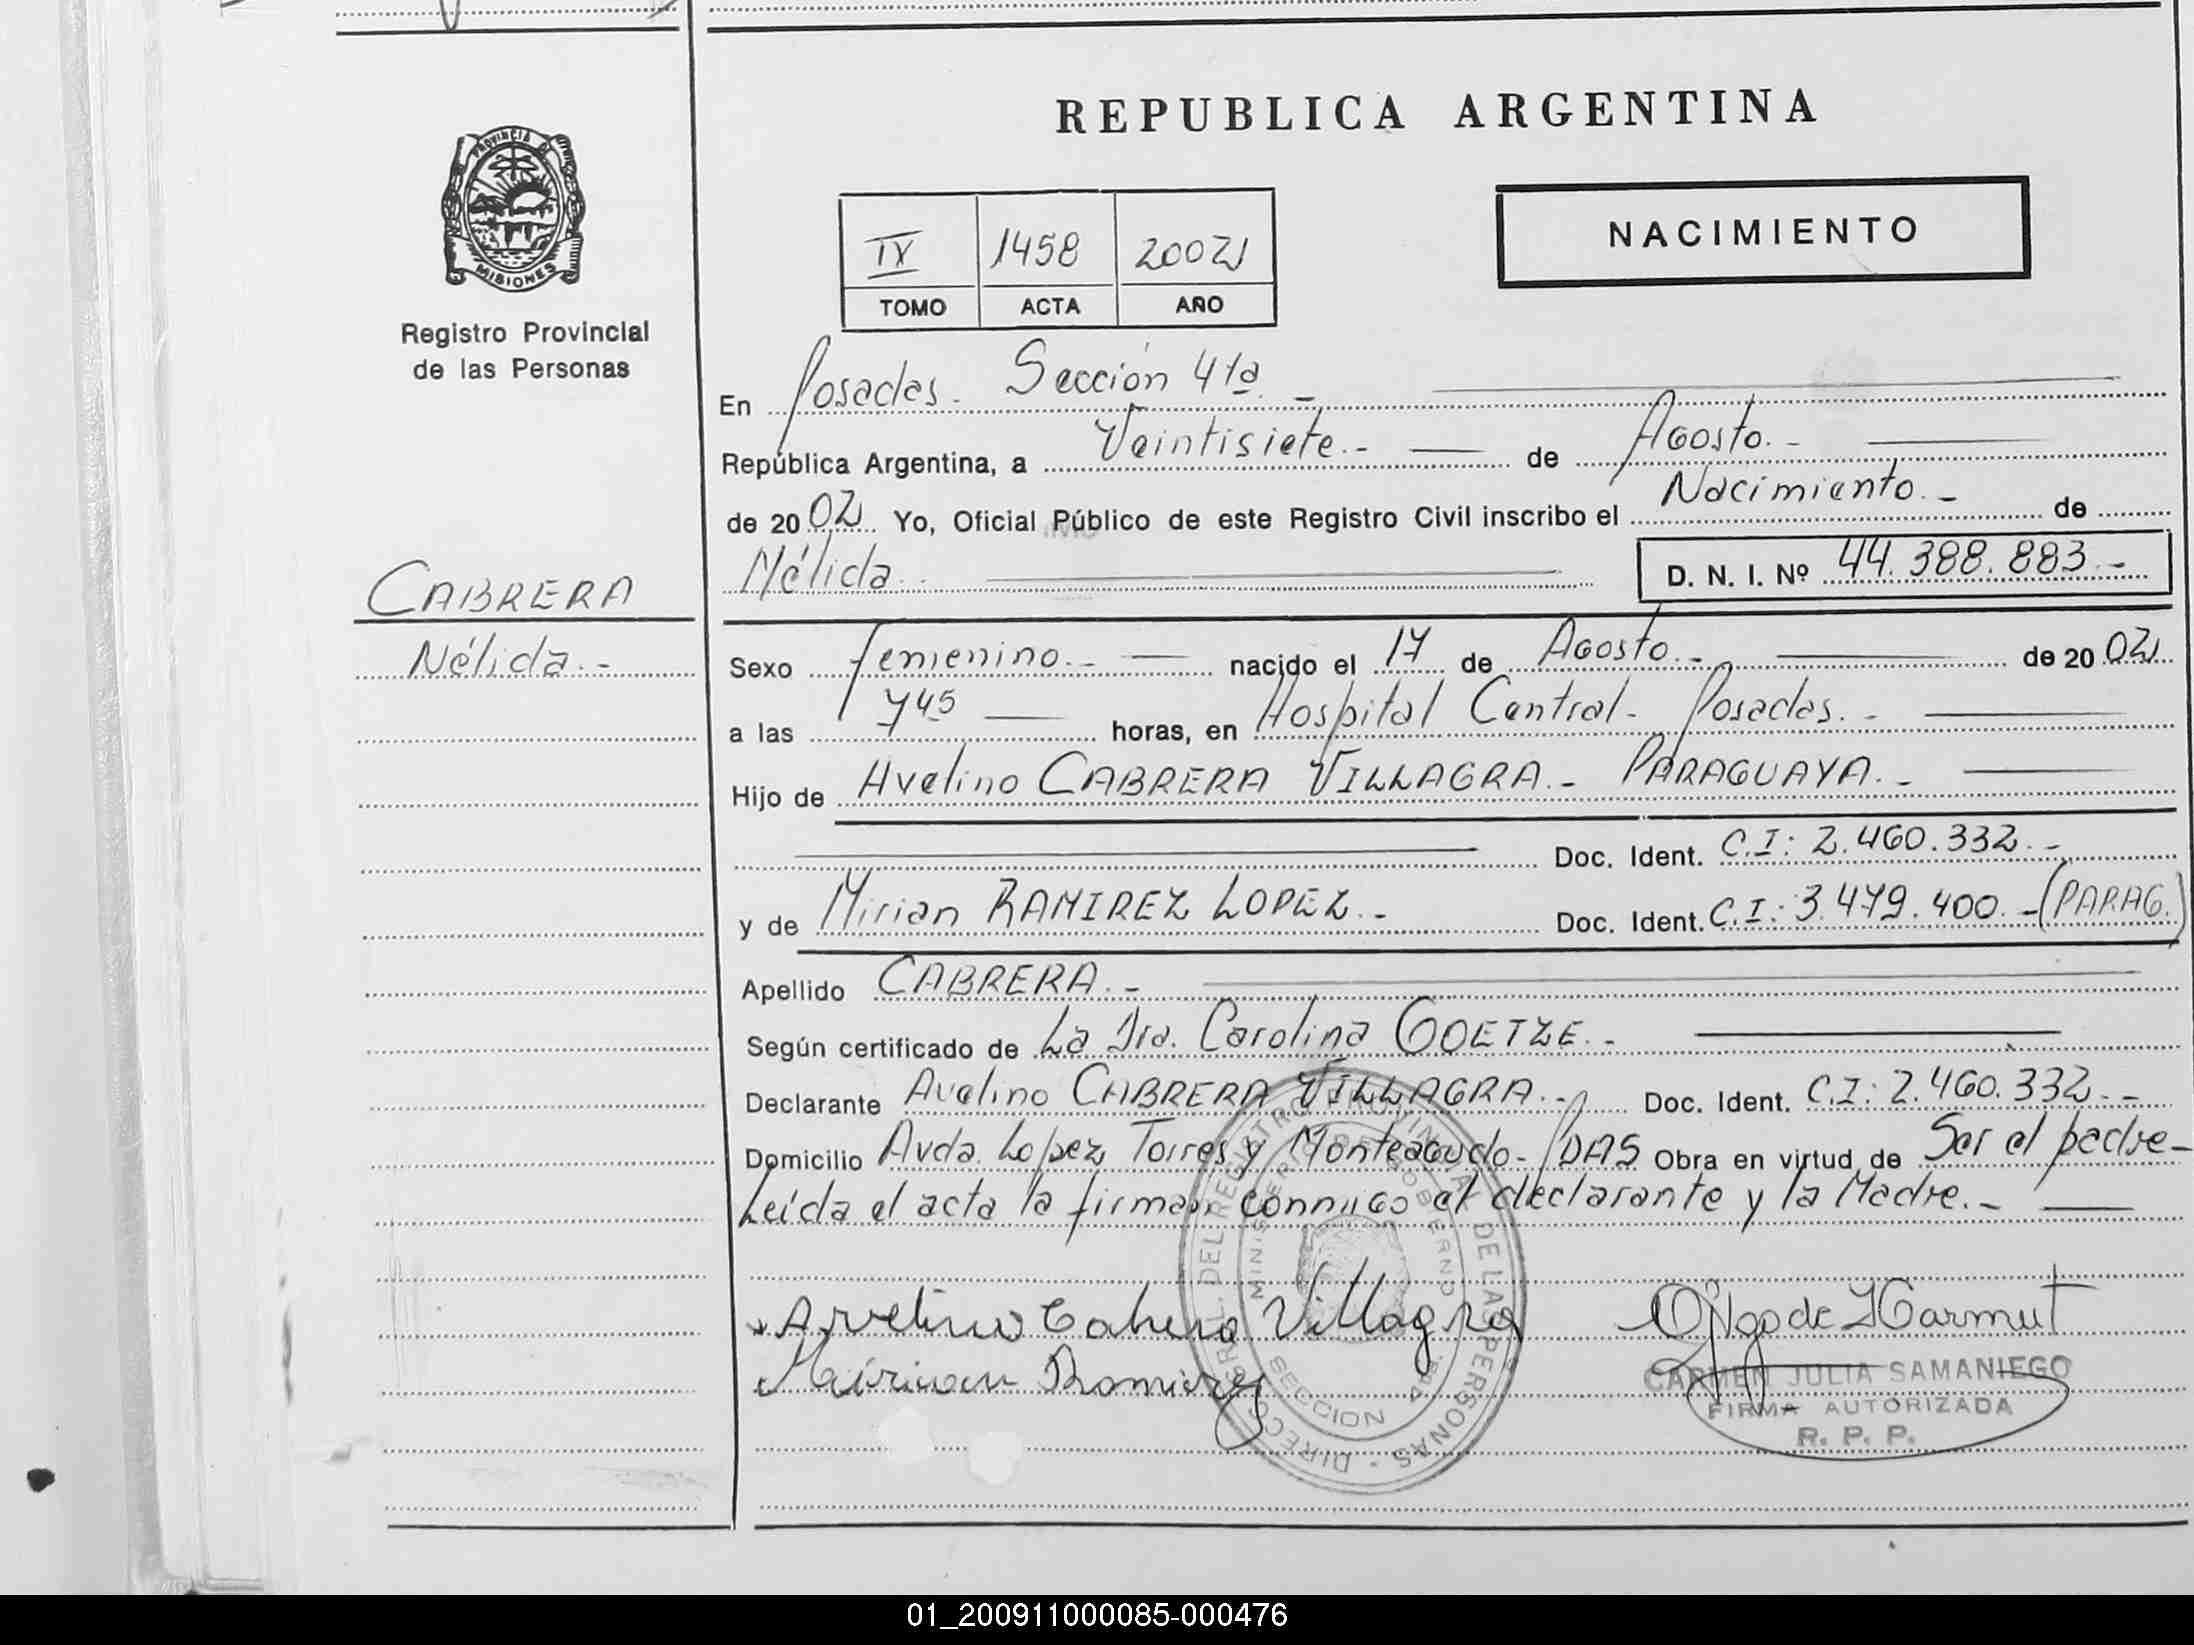 REPUBLICA ARGENTINA
PROVINCIA DE
MISIONES
Registro Provincial
de las Personas
IV 1458 2002
TOMO ACTA AÑO
NACIMIENTO
En Posadas. Sección 4ta. -
República Argentina, a Veintisiete.- de Agosto.-
de 2002 Yo, Oficial Público de este Registro Civil inscribo el Nacimiento.- de
Nélida.- D. N. I. Nº 44.388.883.-
CABRERA
Nélida.-
Sexo Femenino.- nacido el 17 de Agosto.- de 2002
a las 745 horas, en Hospital Central- Posadas.-
Hijo de Avelino CABRERA VILLAGRA.- PARAGUAYA.-
Doc. Ident. C.I: 2.460.332.-
y de Mirian RAMIREZ LOPEZ.- Doc. Ident. C.I: 3.479.400.-(PARAG.)
Apellido CABRERA.-
Según certificado de La Dra. Carolina GOETZE.-
Declarante Avelino CABRERA VILLAGRA.- Doc. Ident. C.I: 2.460.332.-
Domicilio Avda. Lopez Torres y Monteagudo- PDAS Obra en virtud de Ser el padre-
Leída el acta la firman conmigo el declarante y la Madre.-
Arvelino Cabrera Villagra
Mirian Ramirez
DIREC. GRAL. DEL REGISTRO PROVINCIAL DE LAS PERSONAS -
MINISTERIO DE GOBIERNO
SECCION 4ta.
CARMEN JULIA SAMANIEGO
FIRMA AUTORIZADA
R. P. P.
01_200911000085-000476